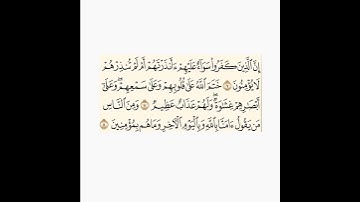 إِنَّ ٱلَّذِينَ كَفَرُوا۟ سَوَآءٌ عَلَيْهِمْ ءَأَنذَرْتَهُمْ أَمْ لَمْ تُنذِرْهُمْ
لَا يُؤْمِنُونَ ۝٦ خَتَمَ ٱللَّهُ عَلَىٰ قُلُوبِهِمْ وَعَلَىٰ سَمْعِهِمْ ۖ وَعَلَىٰٓ
أَبْصَٰرِهِمْ غِشَٰوَةٌ ۖ وَلَهُمْ عَذَابٌ عَظِيمٌ ۝٧ وَمِنَ ٱلنَّاسِ
مَن يَقُولُ ءَامَنَّا بِٱللَّهِ وَبِٱلْيَوْمِ ٱلْءَاخِرِ وَمَا هُم بِمُؤْمِنِينَ ۝٨